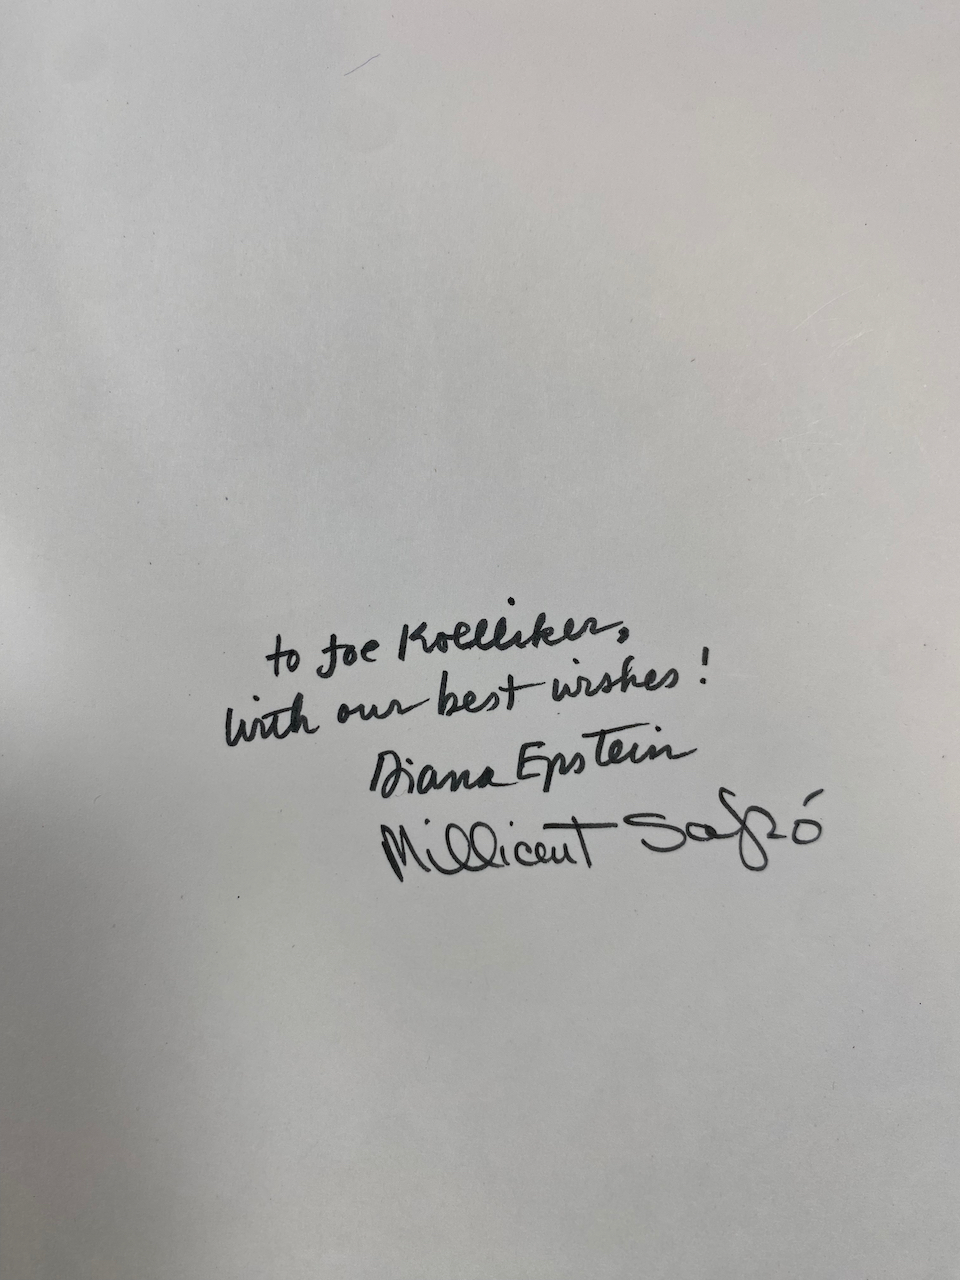 to Joe Koelliker,
with our best wishes!
Diana Epstein
Millicent Safró